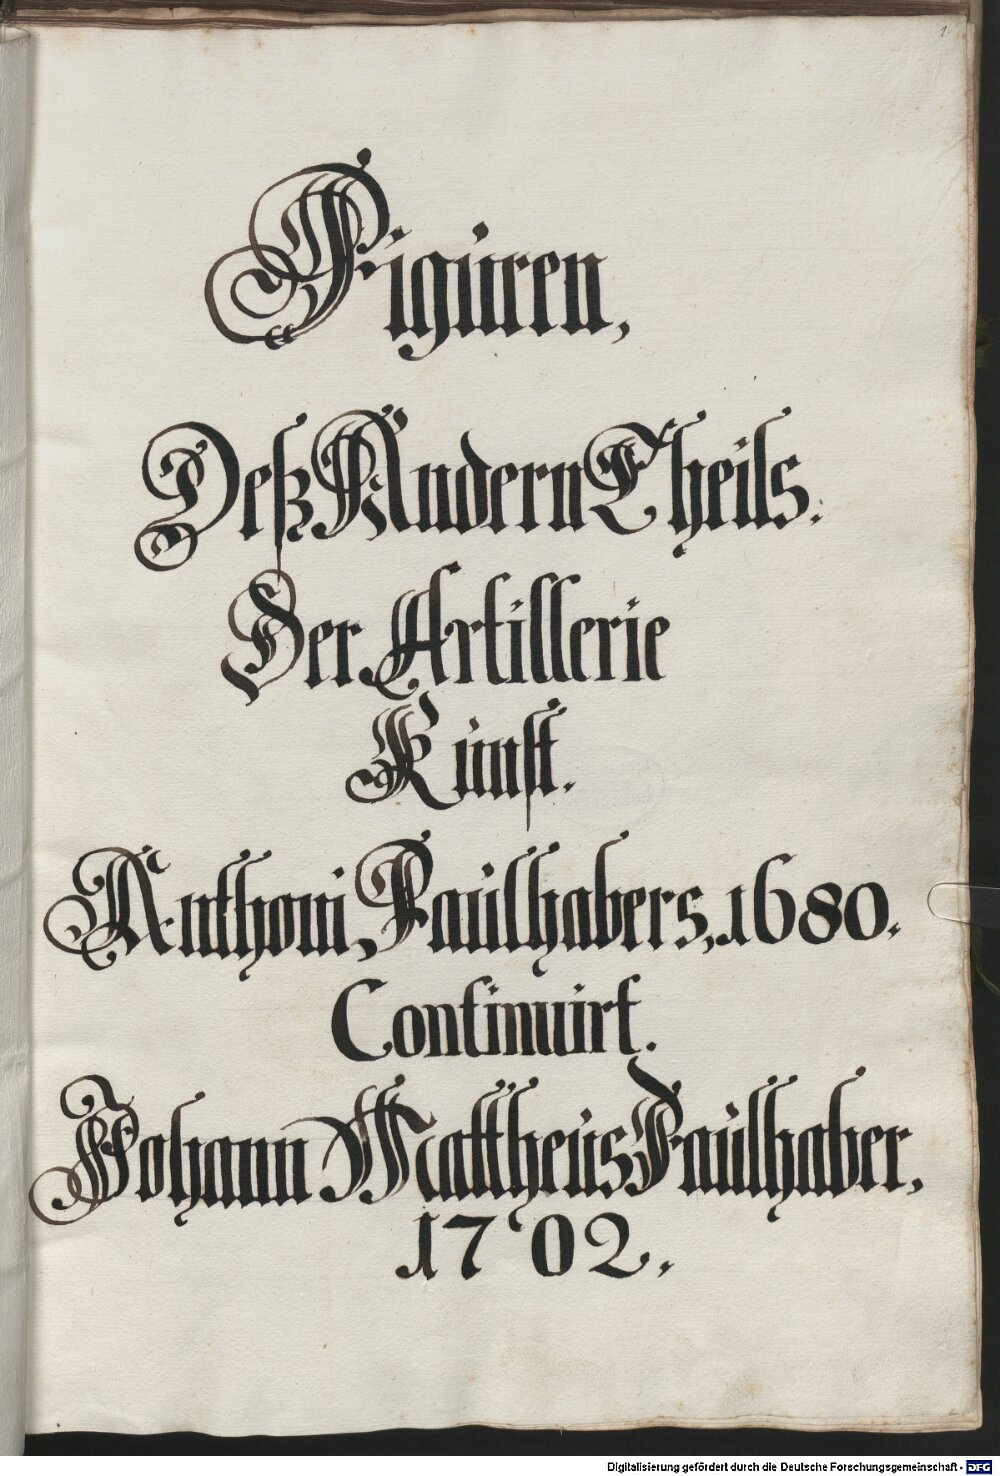 1.
Figuren,
Deß Andern Theils.
Der Artillerie
Kunst.
Anthoni, Faulhabers, 1680.
Continuirt.
Johann Mattheus Faulhaber,
1702.
Digitalisierung gefördert durch die Deutsche Forschungsgemeinschaft - DFG